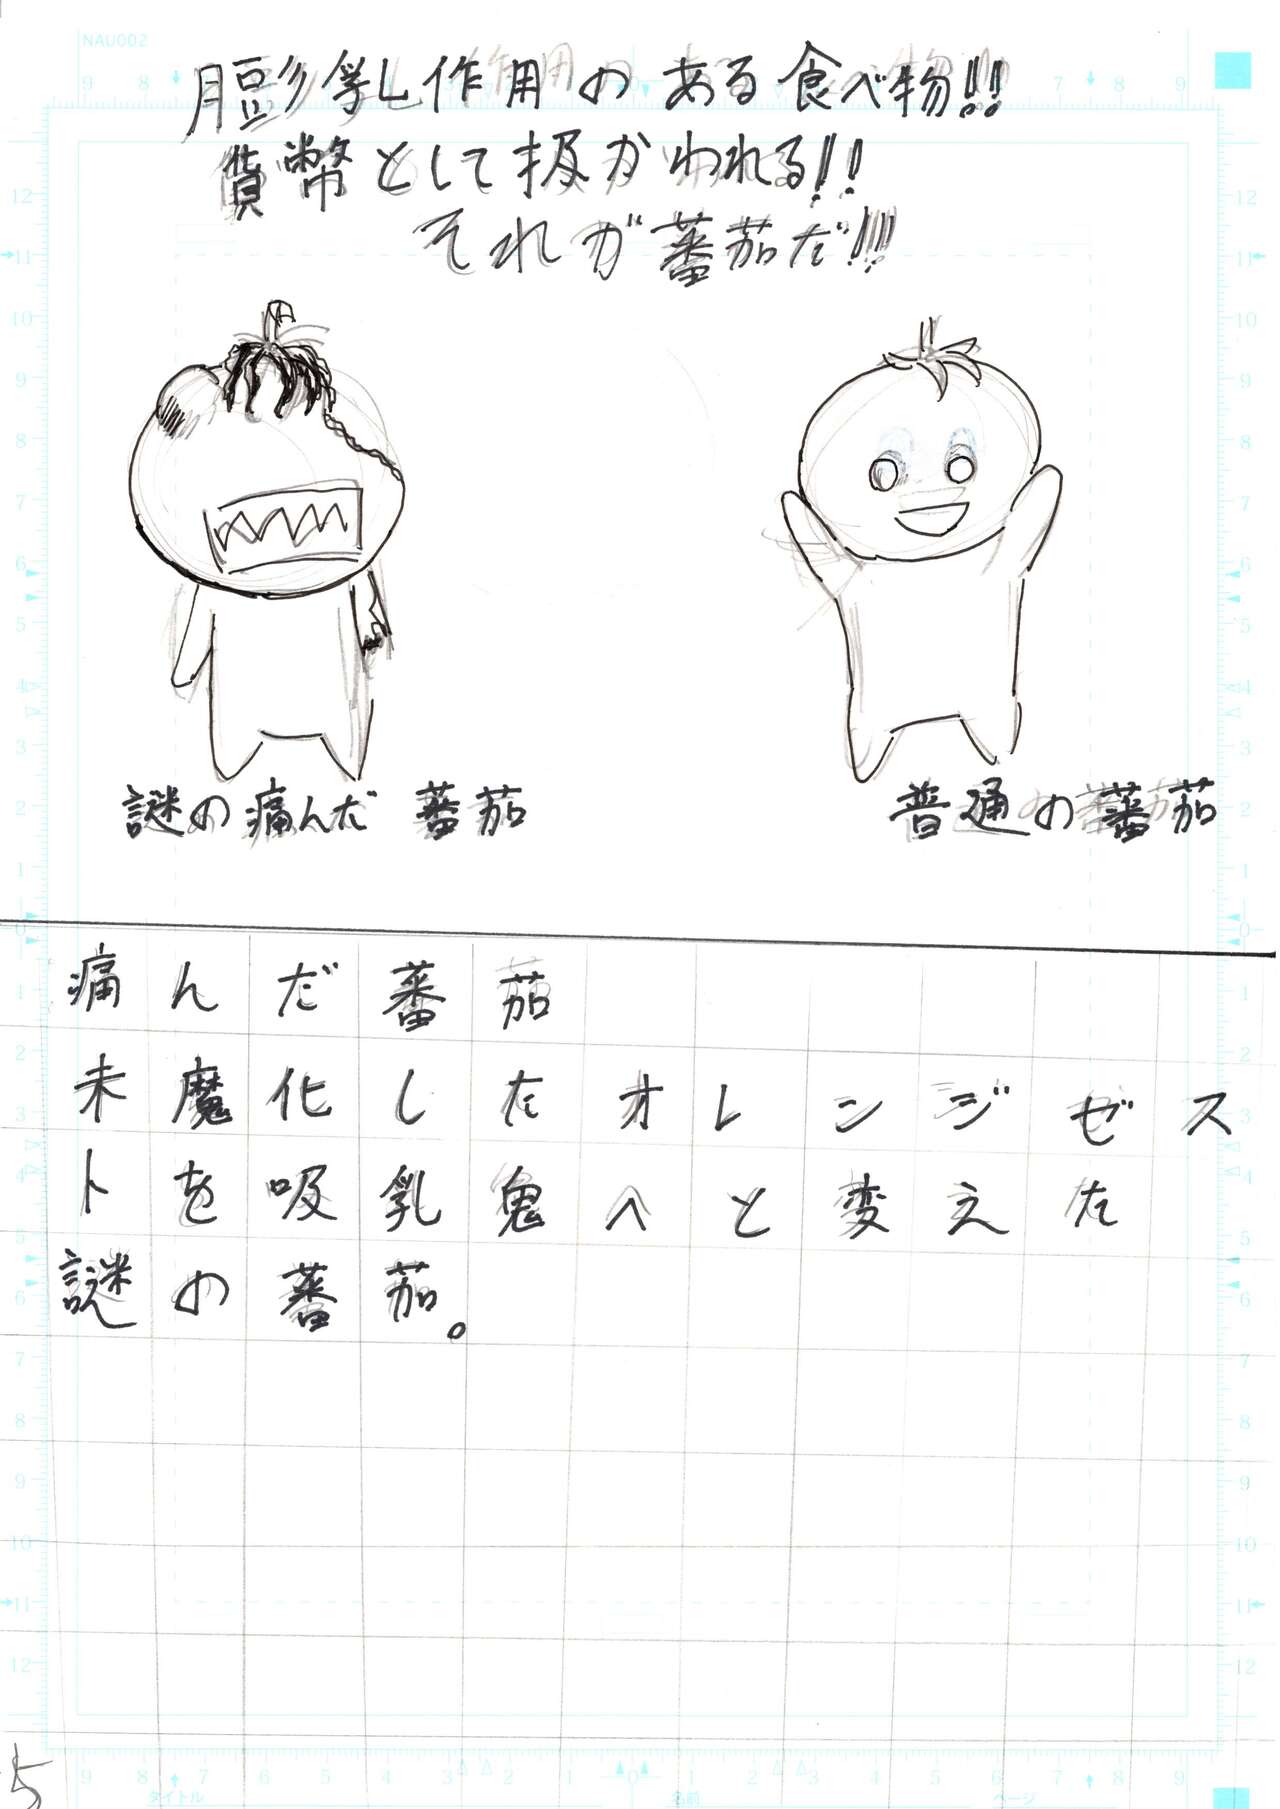 NAU002
膨乳作用のある食べ物!!
貨幣として扱かわれる!!
それが蕃茄だ!!!
謎の痛んだ蕃茄
普通の蕃茄
痛んだ蕃茄
未魔化したオレンジゼス
トを吸乳鬼へと変えた
謎の蕃茄。
5
タイトル
名前
ページ